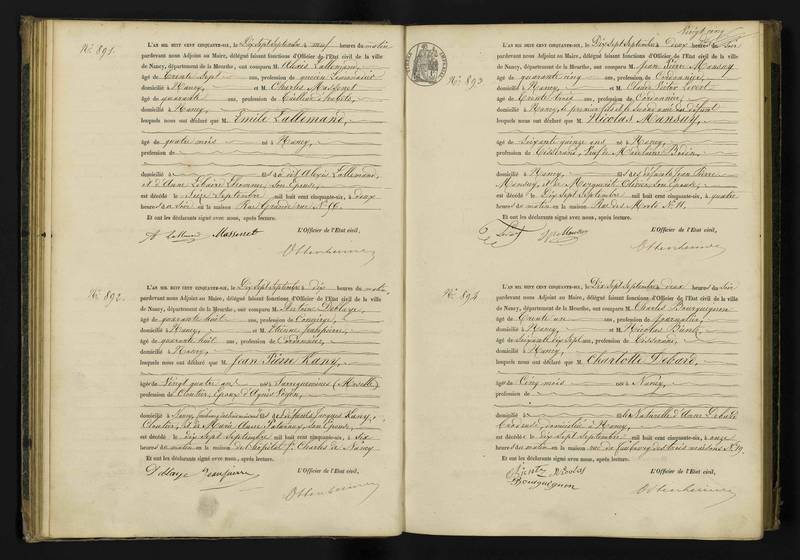 N.º 891.
L'AN MIL HUIT CENT CINQUANTE-SIX, le Dix Sept Septembre à neuf heures du matin
pardevant nous Adjoint au Maire, délégué faisant fonctions d'Officier de l'Etat civil de la ville
de Nancy, département de la Meurthe, ont comparu M. Alexis Lallemand,
âgé de Trente Sept ans, profession de
domicilié à Nancy, et M. Charles Massenet
âgé de quarante ans, profession de Tailleur d'habits,
domicilié à Nancy,
lesquels nous ont déclaré que M. Emile Lallemand,
âgé de quatre mois né à Nancy
profession de
domicilié fils dudit Alexis Lallemand,
et d'Anne son Epouse,
est décédé le Seize Septembre mil huit cent cinquante-six, à deux
heures du Soir en la maison Rue Grande rue N.º 66.
Et ont les déclarants signé avec nous, après lecture.
A Lallemand Massenet
L'Officier de l'Etat civil,
Ottenheimer
N.º 892.
L'AN MIL HUIT CENT CINQUANTE-SIX, le Dix Sept Septembre à dix heures du matin,
pardevant nous Adjoint au Maire, délégué faisant fonctions d'Officier de l'Etat civil de la ville
de Nancy, département de la Meurthe, ont comparu M. Antoine Deblaye,
âgé de quarante huit ans, profession de Concierge,
domicilié à Nancy, et M. Etienne Jeanpierre,
âgé de quarante huit ans, profession de Cordonnier,
domicilié à Nancy,
lesquels nous ont déclaré que M. Jean Pierre Kany,
âgé de Vingt quatre ans né à Sarreguemines (Moselle)
profession de Cloutier, Epoux d'Agnès
domicilié à Nancy, fils de défunts Jacques Kany,
Cloutier, et de Marie Anne son Epouse,
est décédé le dix Sept Septembre mil huit cent cinquante-six, à six
heures du matin en la maison de l'hôpital St. Charles de Nancy
Et ont les déclarants signé avec nous, après lecture.
Deblaye Jeanpierre
L'Officier de l'Etat civil,
Ottenheimer
Vingt cinq
N.º 893
L'AN MIL HUIT CENT CINQUANTE-SIX, le Dix Sept Septembre à deux heures du Soir
pardevant nous Adjoint au Maire, délégué faisant fonctions d'Officier de l'Etat civil de la ville
de Nancy, département de la Meurthe, ont comparu M. Jean Pierre Mansuy
âgé de quarante cinq ans, profession de Cordonnier,
domicilié à Nancy, et M. Victor
âgé de Trente trois ans, profession de Cordonnier,
domicilié à Nancy, le premier fils et le second ami du défunt
lesquels nous ont déclaré que M. Nicolas Mansuy,
âgé de Soixante quinze ans né à Nancy,
profession de Tisserand, Veuf de Madelaine
domicilié à Nancy fils de défunts Jean Pierre
Mansuy, et de Marguerite son Epouse,
est décédé le Dix Sept Septembre mil huit cent cinquante-six, à quatre
heures du matin en la maison Rue des Morts N.º 11.
Et ont les déclarants signé avec nous, après lecture.
L'Officier de l'Etat civil,
Ottenheimer
N.º 894.
L'AN MIL HUIT CENT CINQUANTE-SIX, le Dix Sept Septembre à deux heures du Soir
pardevant nous Adjoint au Maire, délégué faisant fonctions d'Officier de l'Etat civil de la ville
de Nancy, département de la Meurthe, ont comparu M. Charles Bourguignon
âgé de Trente ans, profession de Journalier,
domicilié à Nancy et M. Nicolas
âgé de Soixante dix Sept ans, profession de Tisserand,
domicilié à Nancy,
lesquels nous ont déclaré que M. Charlotte Debard,
âgé de Cinq mois né à Nancy,
profession de
domicilié à fille Naturelle d'Anne Debard
domiciliée à Nancy,
est décédé le dix Sept Septembre mil huit cent cinquante-six, à onze
heures du matin en la maison rue du faubourg des trois maisons N.º 19.
Et ont les déclarants signé avec nous, après lecture.
Nicolas
Bourguignon
L'Officier de l'Etat civil,
Ottenheimer